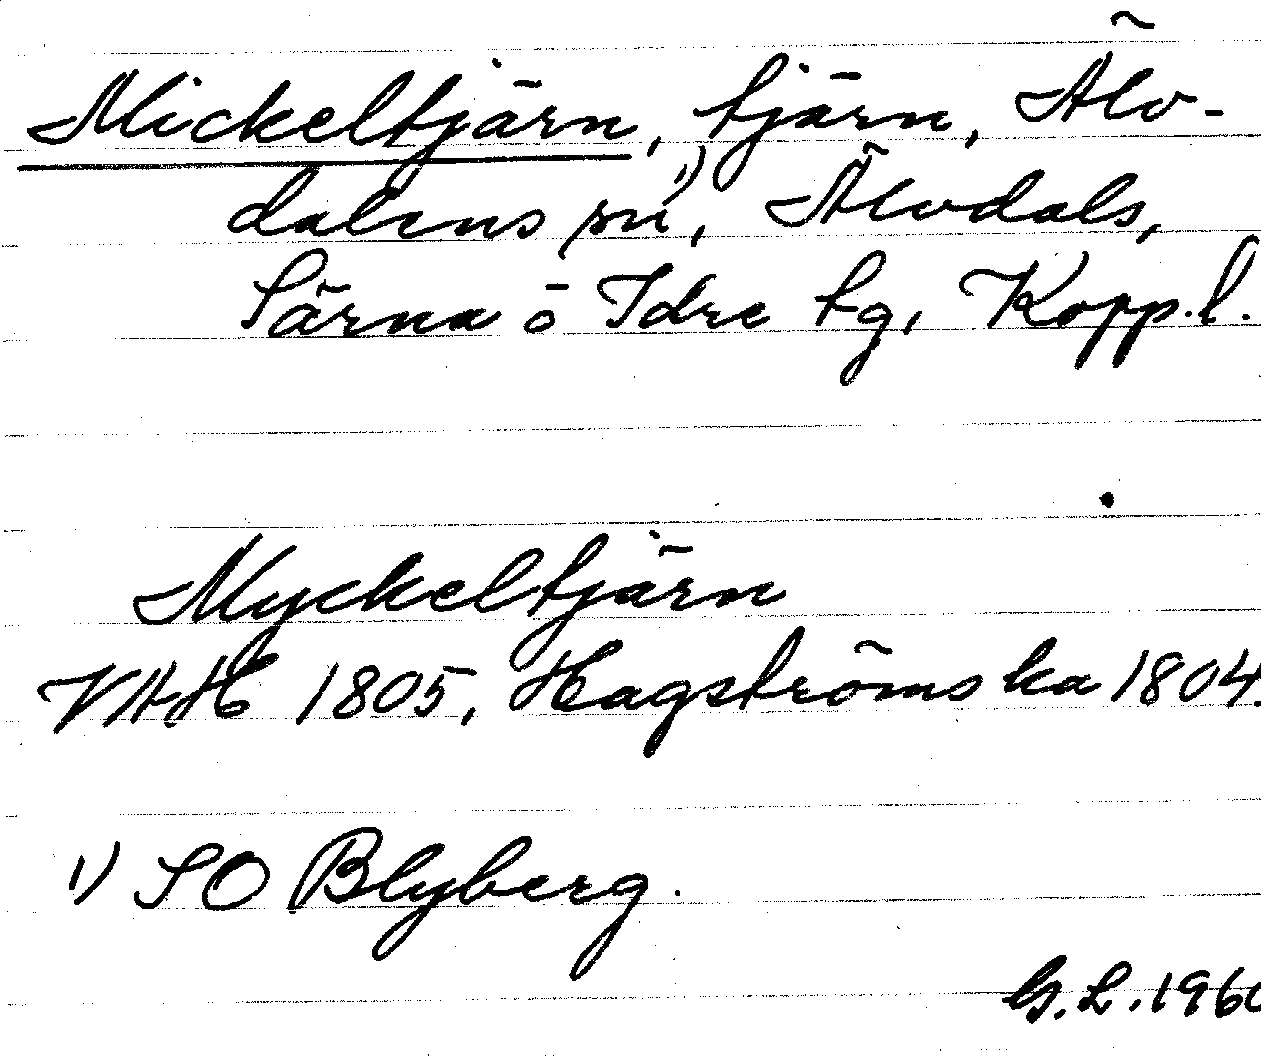 Mickeltjärn, tjärn, Älv-
dalens sn¹⁾, Älvdals,
Särna o Idre tg, Kopp. l.
Myckeltjärn
VAH 1805, Hagströms ka 1804.
1) SO Blyberg.
G. L. 196